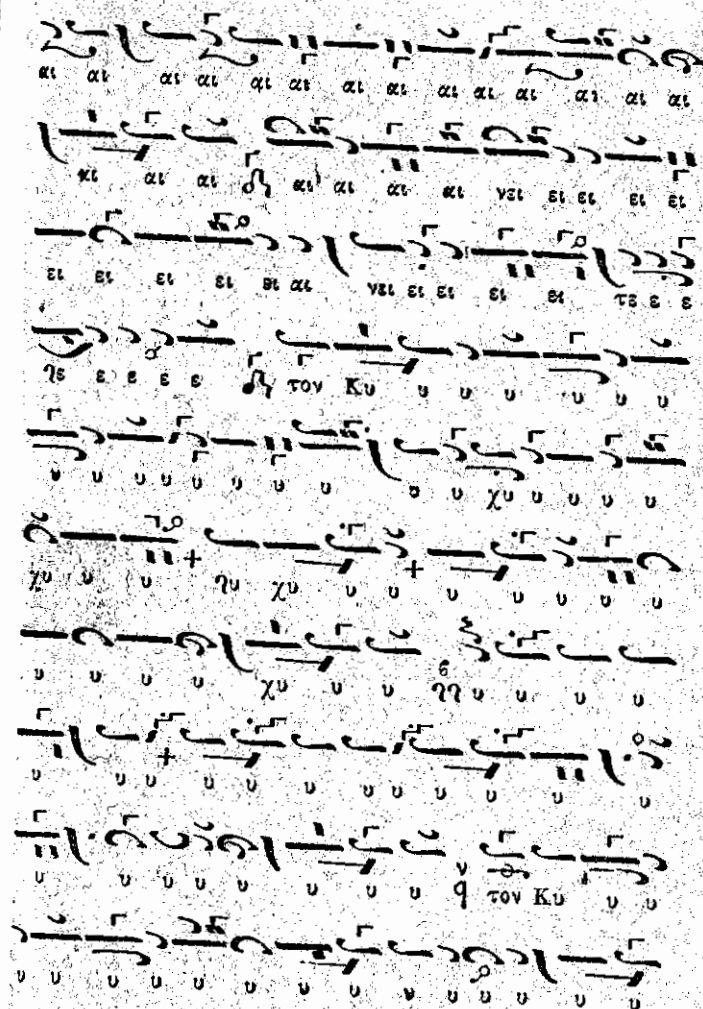 αι αι αι αι αι αι αι αι αι αι αι αι αι αι
αι αι αι αι αι αι αι νει ει ει ει ει
ει ει ει ει ει αι νει ει ει ει ει τε ε ε
ηε ε ε ε ε τον Κυ υ υ υ υ υ υ
υ υ υ υ υ υ υ υ υ υ χυ υ υ υ υ
χυ υ υ ηυ χυ υ υ υ υ υ υ υ
υ υ υ υ χυ υ υ ηη υ υ υ υ
υ υ υ υ υ υ υ υ υ υ υ υ
υ υ υ υ υ υ υ υ τον Κυ υ υ
υ υ υ υ υ υ υ υ υ υ υ υ υ